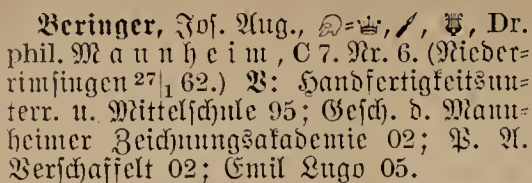 Beringer, Jos. Aug., Dr.
phil. Mannheim, C 7. Nr. 6. (Nieder=
rimsingen 27|1 62.) V: Handfertigkeitsun=
terr. u. Mittelschule 95; Gesch. d. Mann=
heimer Zeichnungsakademie 02; P. A.
Verschaffelt 02; Emil Lugo 05.